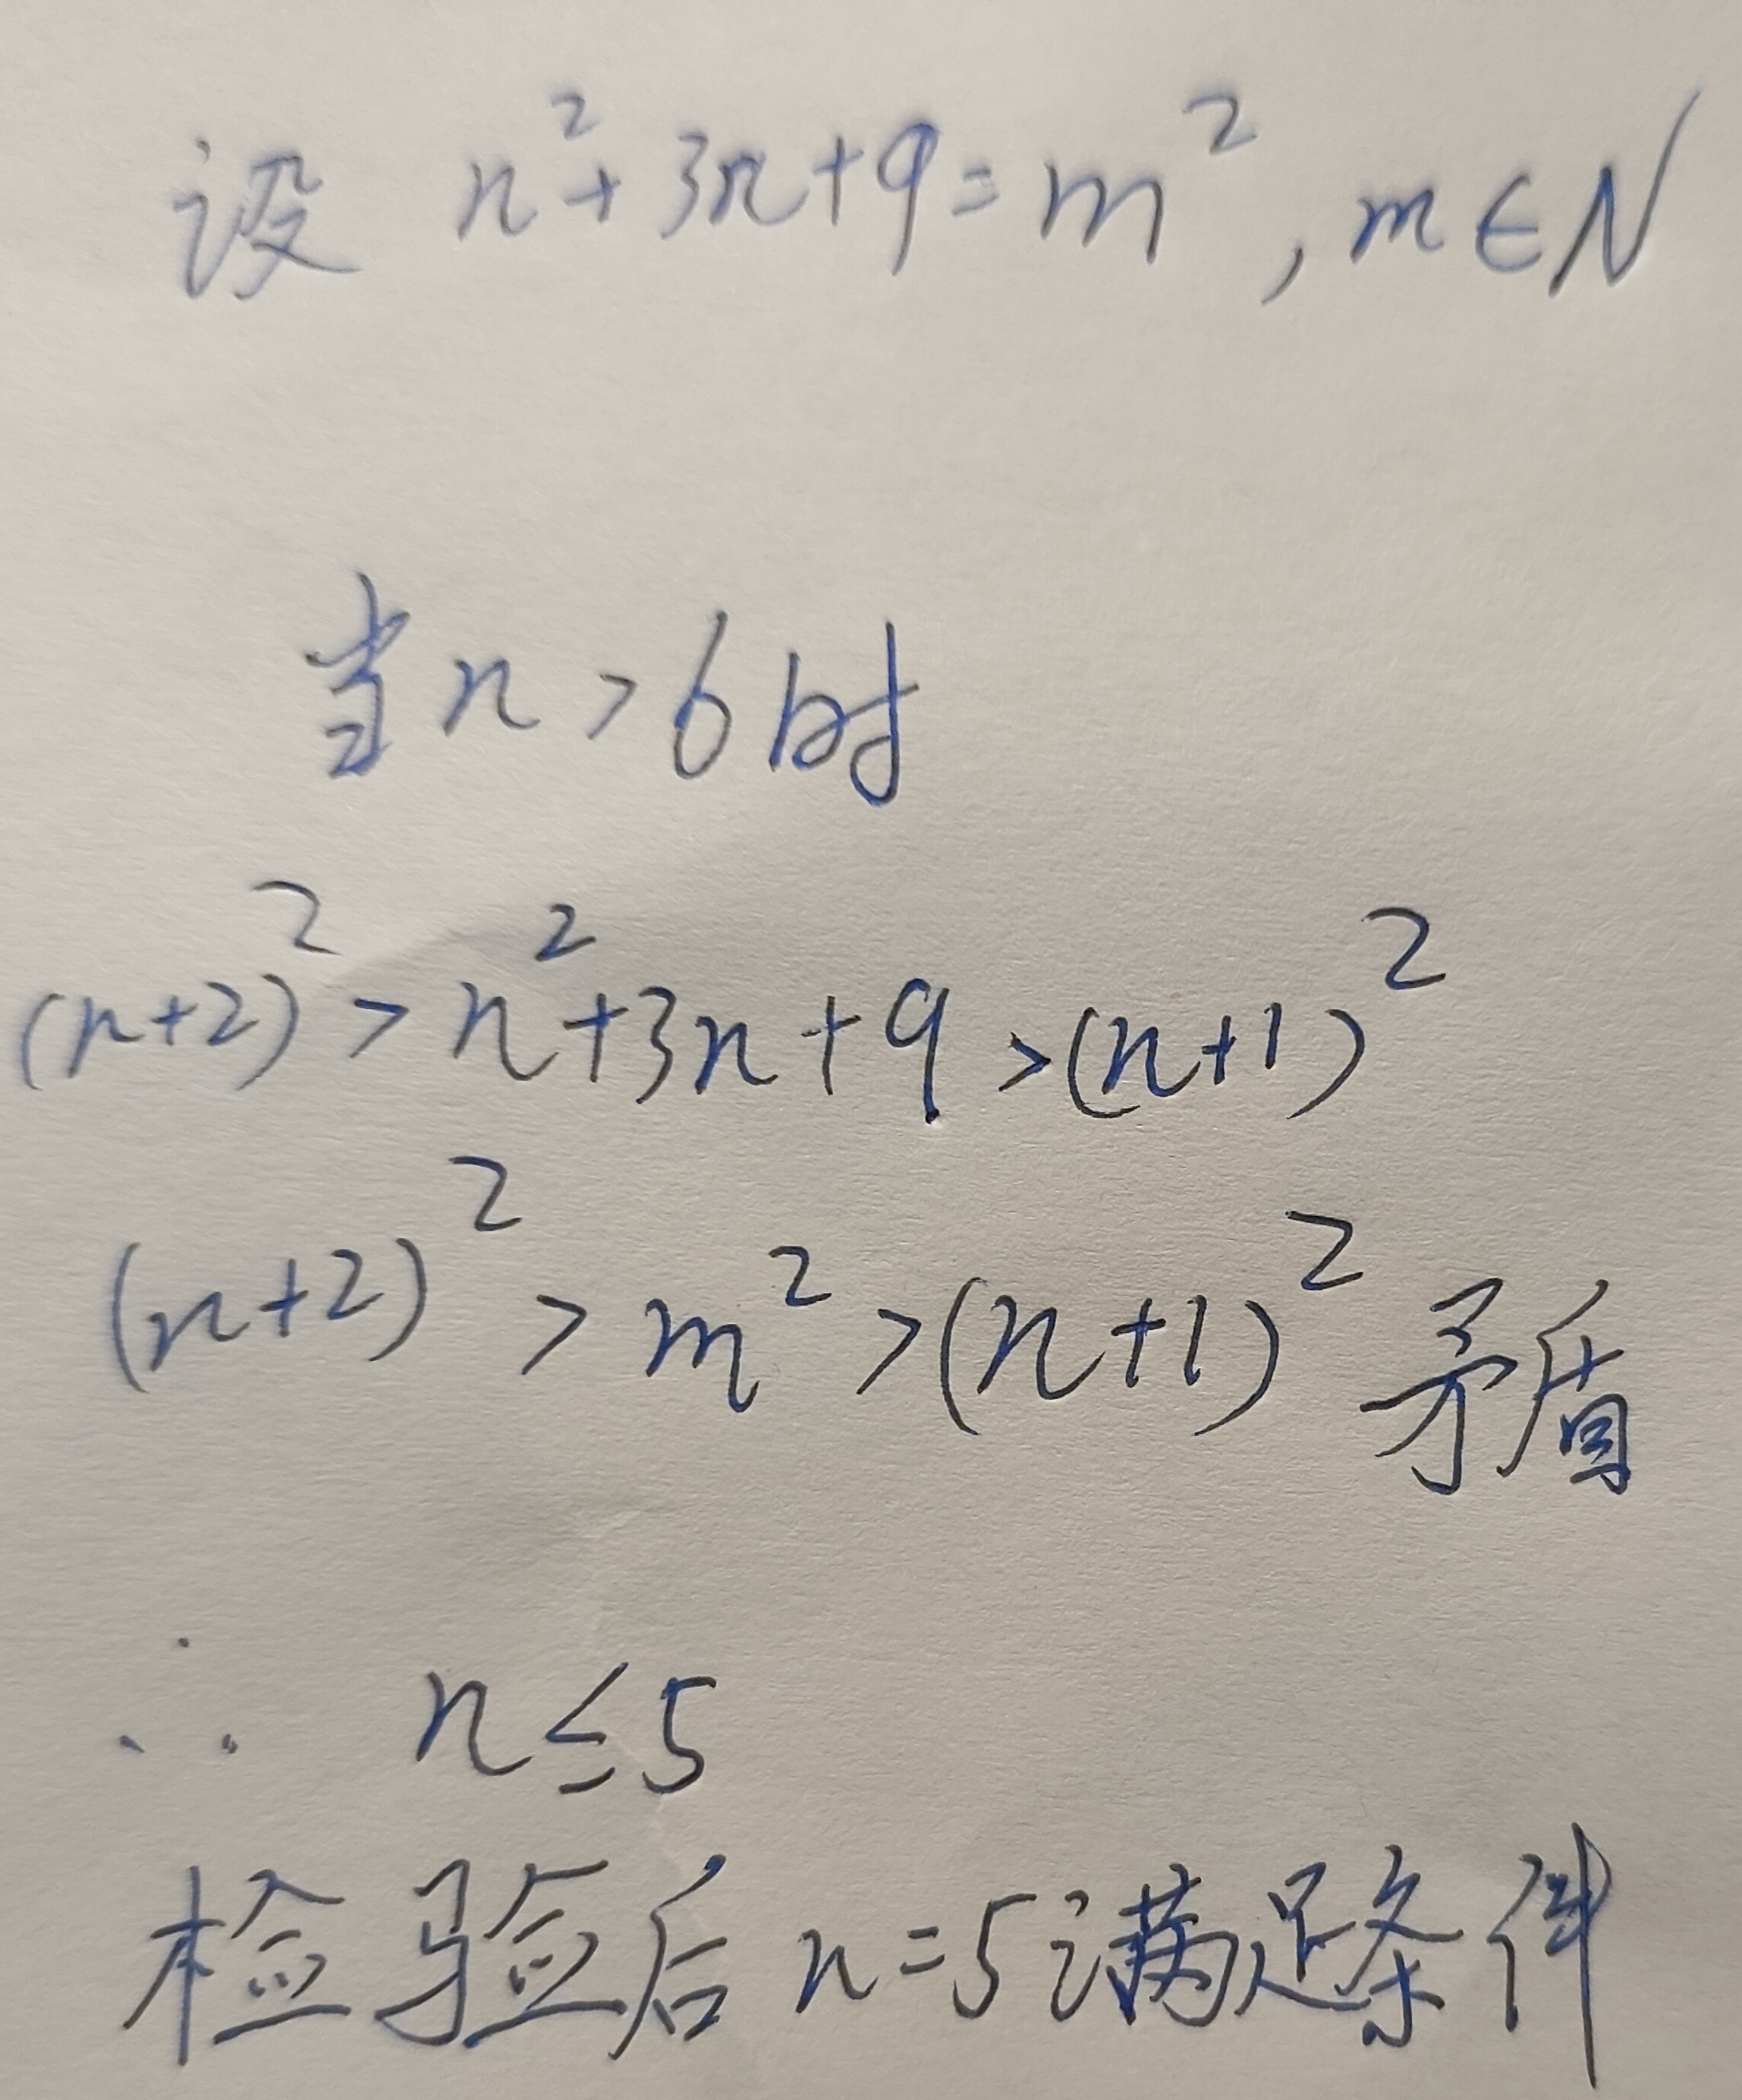 设 n²+3n+9=m², m∈N
当n>6时
(n+2)²>n²+3n+9>(n+1)²
(n+2)²>m²>(n+1)² 矛盾
∴ n≤5
检验后n=5满足条件